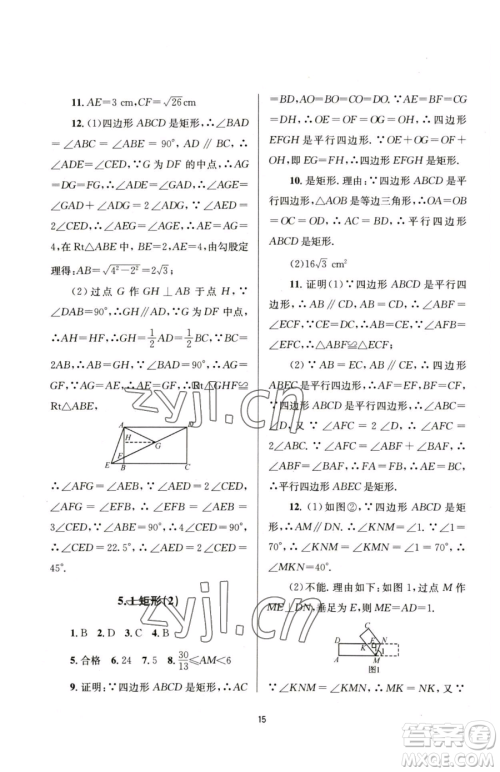 11. AE=3 cm,CF=√26cm
12. (1)四边形 ABCD 是矩形,∴∠BAD
=∠ABC=∠ABE=90°,AD∥BC,∴
∠ADE=∠CED,∵G 为 DF 的中点,∴AG
=DG=FG,∴∠ADE=∠GAD,∴∠AGE=
∠GAD+∠ADE=2∠ADE=2∠CED,
∵∠AEB=2∠CED,∴AE=AG=4,
在 Rt△ABE 中,BE=2,AE=4,由勾股定
理得:AB=√4²-2²=2√3;
(2)过点 G 作 GH⊥AB 于点 H,∵
∠DAB=90°,∴GH∥AD,∵AG=GF,
∴AH=HF,∴GH=1/2AD=1/2BC,∵BC=
2AB,∴AB=GH,∵∠ABE=∠AHG=
90°,AE=AG,∴Rt△AHG≌Rt△EBA,
∴AH=BE,∴BE=HF,∵AB=GH,∴AF=
GE,∵AG=AE,∴AE=GF,∴Rt△GHF≌
Rt△ABE,
A D H G E B F C
∴∠AFG=∠AEB=2∠CED,∴
∠AFG=∠AEB=2∠CED,∴∠AEB+
3∠CED=90°,∵∠AEB=2∠CED,
∴∠CED=22.5°,∴∠AEB=2∠CED=
45°.
5.1矩形(2)
1. B 2. D 3. C 4. B
5. 合格 6. 24 7. 5 8. 30/13≤AM<6
9. 证明:∵四边形 ABCD 是矩形,∴AC
=BD,AO=BO=CO=DO.∵AE=BF=CG
=DH,∴OE=OF=OG=OH,∴四边形
EFGH 是平行四边形.∵OE+OG=FO+
OH,即EG=FH,∴四边形 EFGH 是矩形.
10. 是矩形. 理由:∵四边形 ABCD 是平
行四边形,△AOB 是等边三角形,∴OA=OB
=OC=OD,∴AC=BD,∴平行四边形
ABCD 是矩形.
(2)16√3 cm²
11. 证明(1)∵四边形 ABCD 是平行四
边形,∴AB∥CD,AB=CD,∴∠ABF=
∠ECF,∵EC=DC,∴AB=EC,∵∠ABF=
∠ECF,∠AFB=∠EFC,∴△ABF≌△ECF.
(2)∵AB=EC,AB∥CE,∴四边形
ABEC 是平行四边形,∴FA=FE,FB=FC,
∵四边形 ABCD 是平行四边形,∴∠ABC=
∠D,∵∠AFC=2∠D,∴∠AFC=
2∠ABC.∵∠AFC=∠ABF+∠BAF,
∴∠ABF=∠BAF,∴FA=FB,∴FA=FE
=FB=FC,∴AE=BC,∴平行四边形
ABEC 是矩形.
12. (1)如图②,∵四边形 ABCD 是矩
形,∴AM∥DN.∴∠KNM=∠1.∵∠1=
70°,∴∠KNM=∠KMN=∠1=70°,
∴∠MKN=40°.
(2)不能. 理由如下:如图 1,过点 M 作
ME⊥DN,垂足为 E,则 ME=AD=1.
D K E N A M B
图1
∵∠KNM=∠KMN,∴MK=NK,又∵
15
zyjl.cn
zyjl.cn